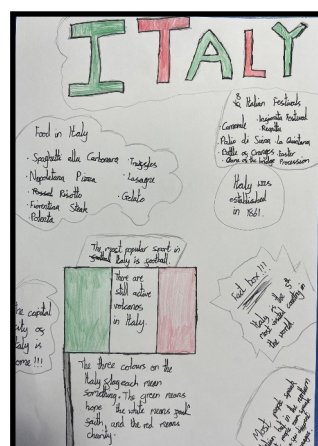 ITALY
Food in Italy
· Spaghetti alla Carbonara · Truffles
· Napoletana Pizza · Lasagne
· Risotto
· Fiorentina Steak · Gelato
· Polenta
8 Italian Festivals
· Carnevale Festival
Regatta
· Palio di Siena · La Quintana
· Battle of Oranges · Easter
· Game of the bridge Procession
Italy was
established
in 1861.
The most popular sport in
Italy is football.
There are
still active
volcanoes
in Italy.
Fact box!!!
Italy is the 5th
most visited country in
the world.
The capital
city of
Italy is
Rome!!!
The three colours on the
Italy flag each mean
something. The green means
hope the white means
faith, and the red means
charity.
Most people speak